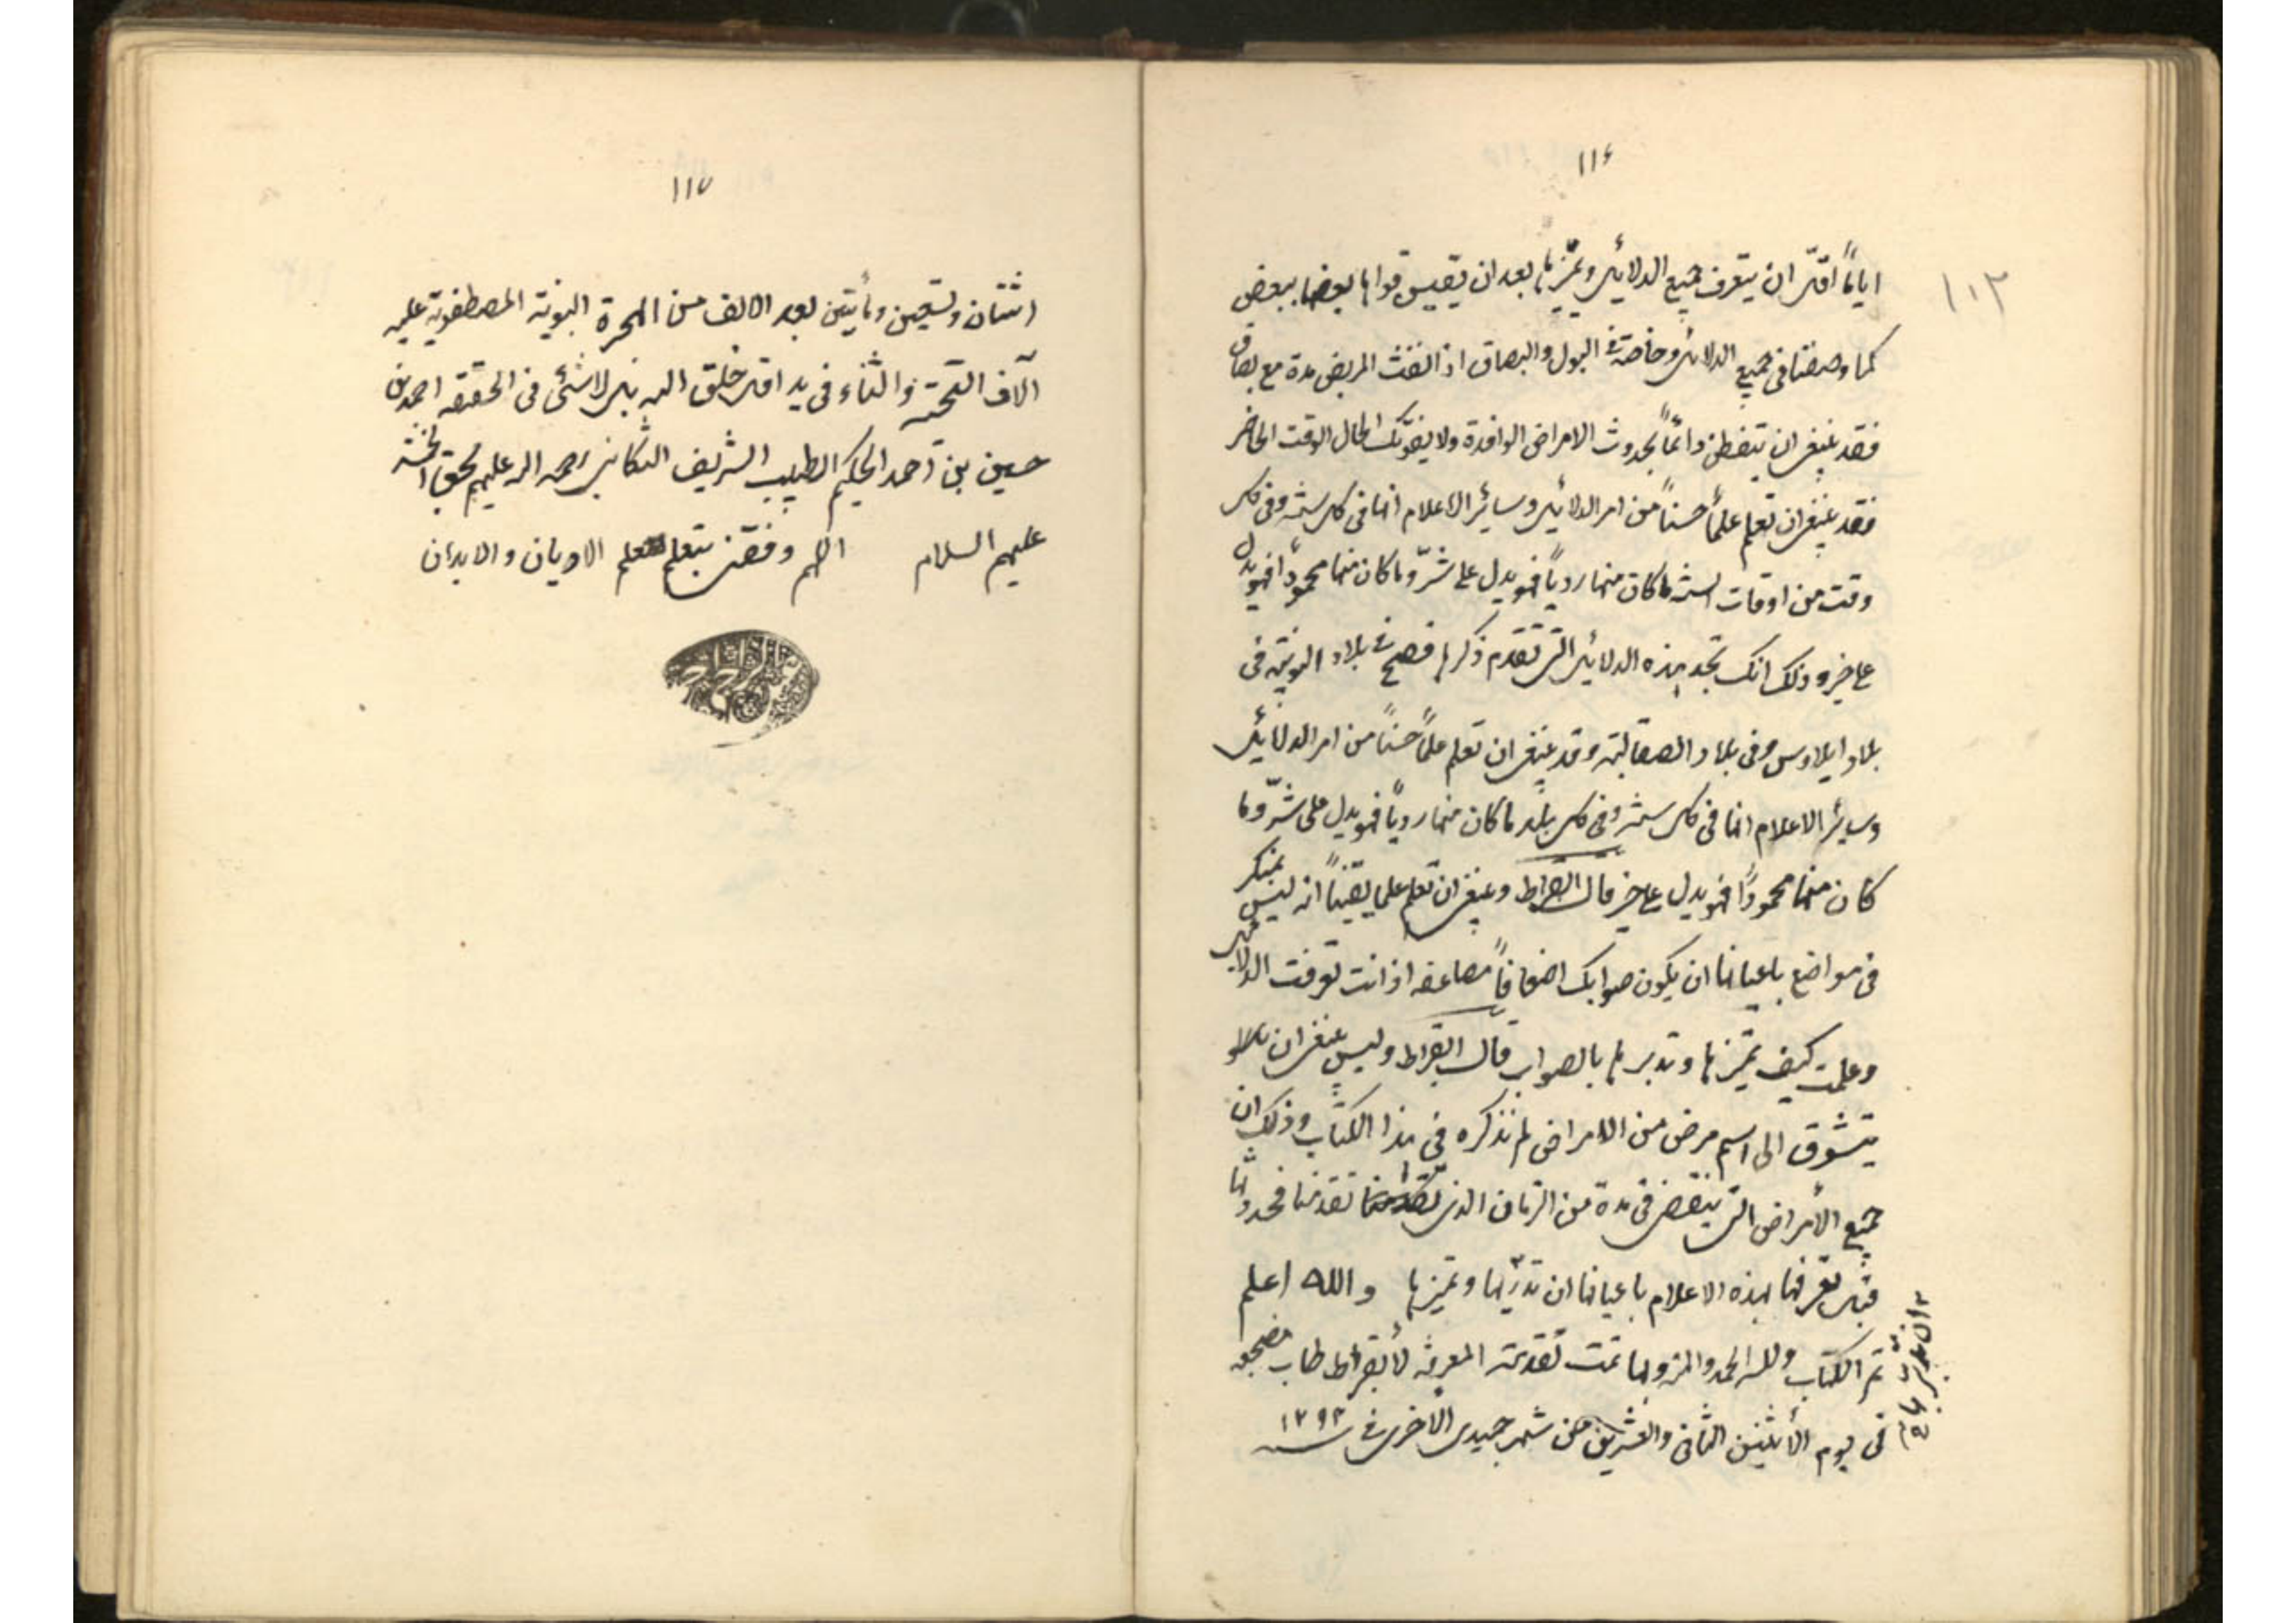 ١١٦
١٠٣
اياماً اقلّ ان يتعرف جميع الدلائل ويميّزها بعد ان يقيس قواها بعضها ببعض
كما وصفنا فى جميع الدلائل وخاصة فى البول والبصاق اذا نفث المريض مدة مع بصاق
فقد ينبغى ان تتفطن دائماً بحدوث الامراض الوافدة ولا يفوتك الحال الوقت الحاضر
فقد ينبغى ان تعلم علماً حسناً من امر الدلائل وساير الاعلام انها فى كل سنة وفى كل
وقت من اوقات السنة ما كان منها ردياً فهو يدل على شرّ وما كان منها محموداً فهو يدل
على خير وذلك انك تجد هذه الدلائل التى تقدم ذكرها فصح فى بلاد النوبة فى
بلاد ايلاوس وفى بلاد الصقالبة وقد ينبغى ان تعلم علماً حسناً من امر الدلائل
وساير الاعلام انها فى كل سنة وفى كل بلد ما كان منها ردياً فهو يدل على شرّ وما
كان منها محموداً فهو يدل على خير قال ابقراط وينبغى ان تعلم علما يقيناً انه ليس بمنكر
فى مواضع باعيانها ان يكون صوابك اضعافاً مضاعفه اذ انت تعرفت الدلايل
وعلمت كيف تميزها وتدبرها بالصواب قال ابقراط وليس ينبغى ان
يتشوق الى اسم مرض من الامراض لم نذكره فى هذا الكتاب وذلك ان
جميع الأمراض التى ينقضى فى مدة من الزمان الذى تقدمنا فحدونها
قبل تعرفها بهذه الاعلام باعيانها ان تدبّرها وتميزها والله اعلم
تم الكتاب ولله الحمد والمنه وبها تمت تقدمة المعرفه لأبقراط طاب مضجعه
فى يوم الأثنين الثانى والعشرين من شهر جميدى الأخرى فى سنه ١٢٩٢
١١٧
اثنتان وتسعين ومأتين بعد الالف من الهجرة النبوية المصطفوية عليه
آلاف التحية والثناء فى يد اقل خلق الله بل لاشئى فى الحقيقه احمد بن
حسين بن احمد الحكيم الطبيب الشريف التنكابنى رحمه الله عليهم بحق الخمسه
عليهم السلام اللهم وفقنى بتعلم علم الاديان والابدان